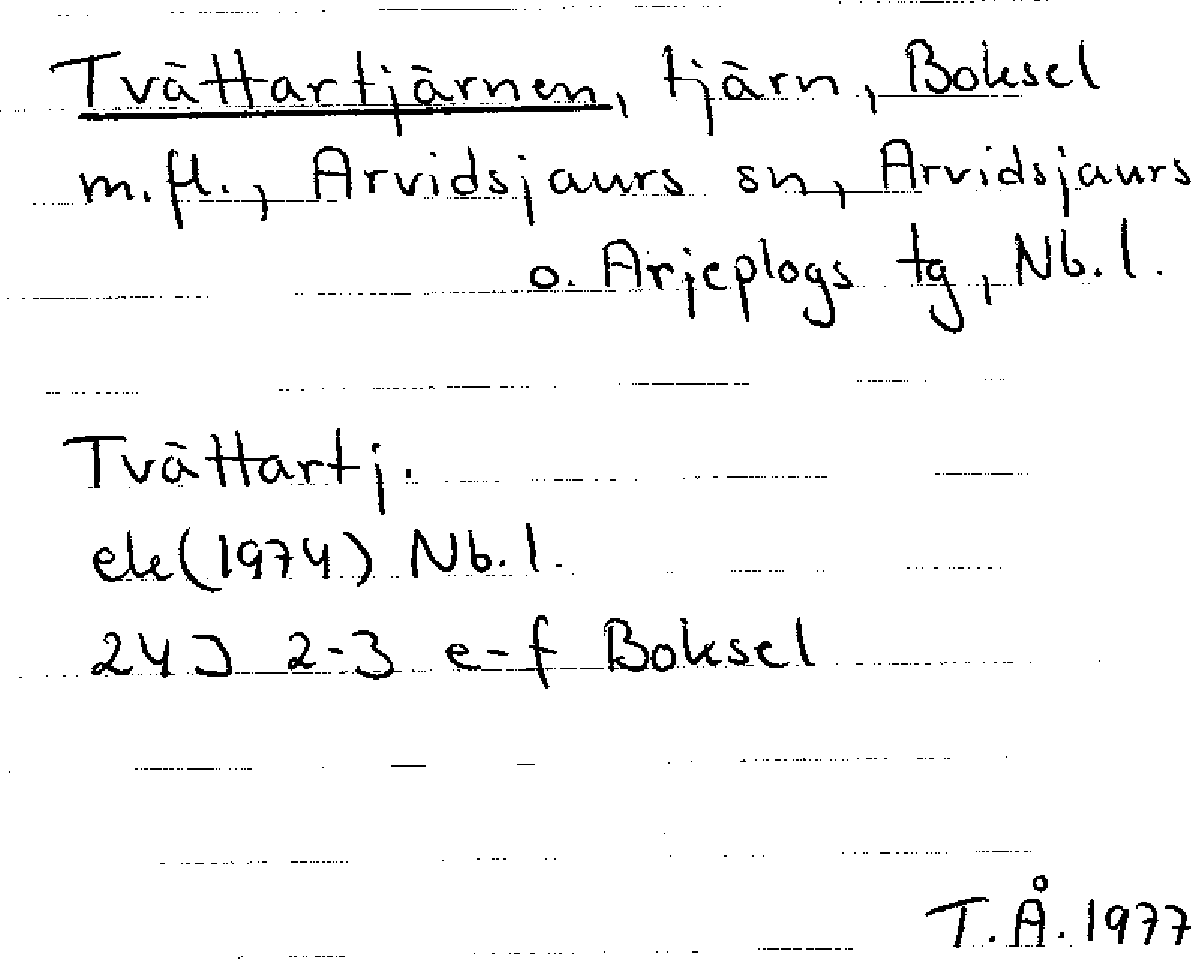 Tvättartjärnen, tjärn, Boksel
m.fl., Arvidsjaurs sn, Arvidsjaurs
o. Arjeplogs tg, Nb.l.
Tvättartj.
ek(1974) Nb.l.
24J 2-3 e-f Boksel
T.Å.1977